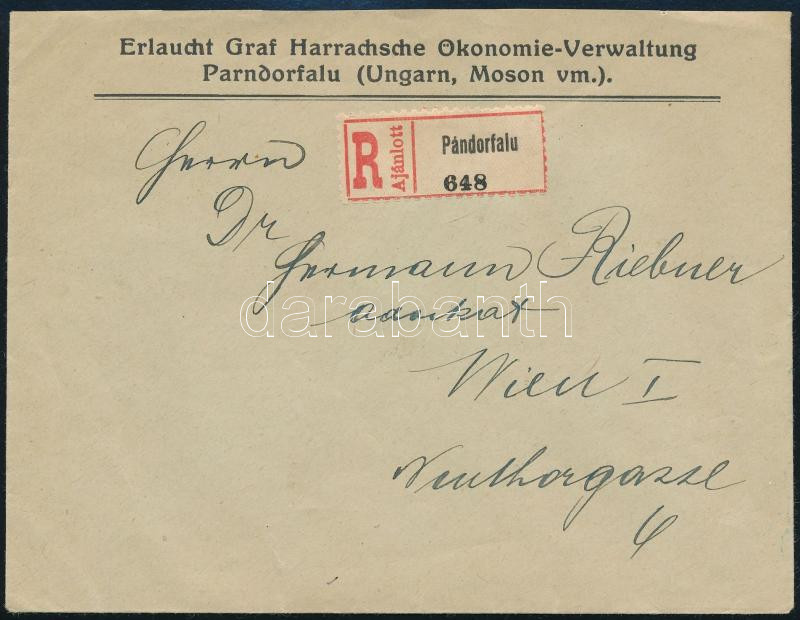 Erlaucht Graf Harrachsche Ökonomie-Verwaltung
Parndorfalu (Ungarn, Moson vm.).
R
Ajánlott
Pándorfalu
648
Herrn
Dr
Hermann Riebner
Advokat
darabanth
Wien I
Neuthorgasse